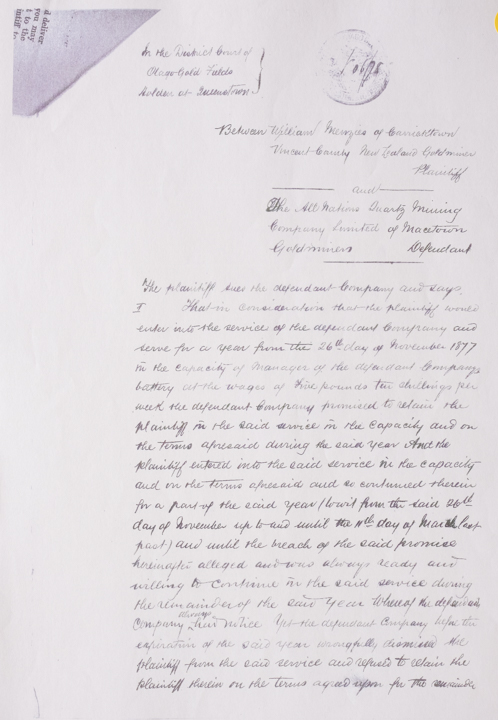 In the District Court of
Otago Gold Fields
Holden at Queenstown
Between William Menzies of Carricktown
Vincent County New Zealand Goldminer
Plaintiff
and
The All Nations Quartz Mining
Company Limited of Macetown
Goldminers Defendant
The plaintiff sues the defendant Company and says
I That in consideration that the plaintiff would
enter into the service of the defendant Company and
serve for a year from the 26th day of November 1877
in the capacity of Manager of the defendant Companys
battery at the wages of Five pounds ten shillings per
week the defendant Company promised to retain the
plaintiff in the said service in the capacity and on
the terms aforesaid during the said year And the
plaintiff entered into the said service in the capacity
and on the terms aforesaid and so continued therein
for a part of the said year (to wit from the said 26th
day of November up to and until the 11th day of March last
past) and until the breach of the said promise
hereinafter alleged and was always ready and
willing to continue in the said service during
the remainder of the said year Whereof the defendant
Company always had notice Yet the defendant Company before the
expiration of the said year wrongfully dismissed the
plaintiff from the said service and refused to retain the
plaintiff therein on the terms agreed upon for the remainder